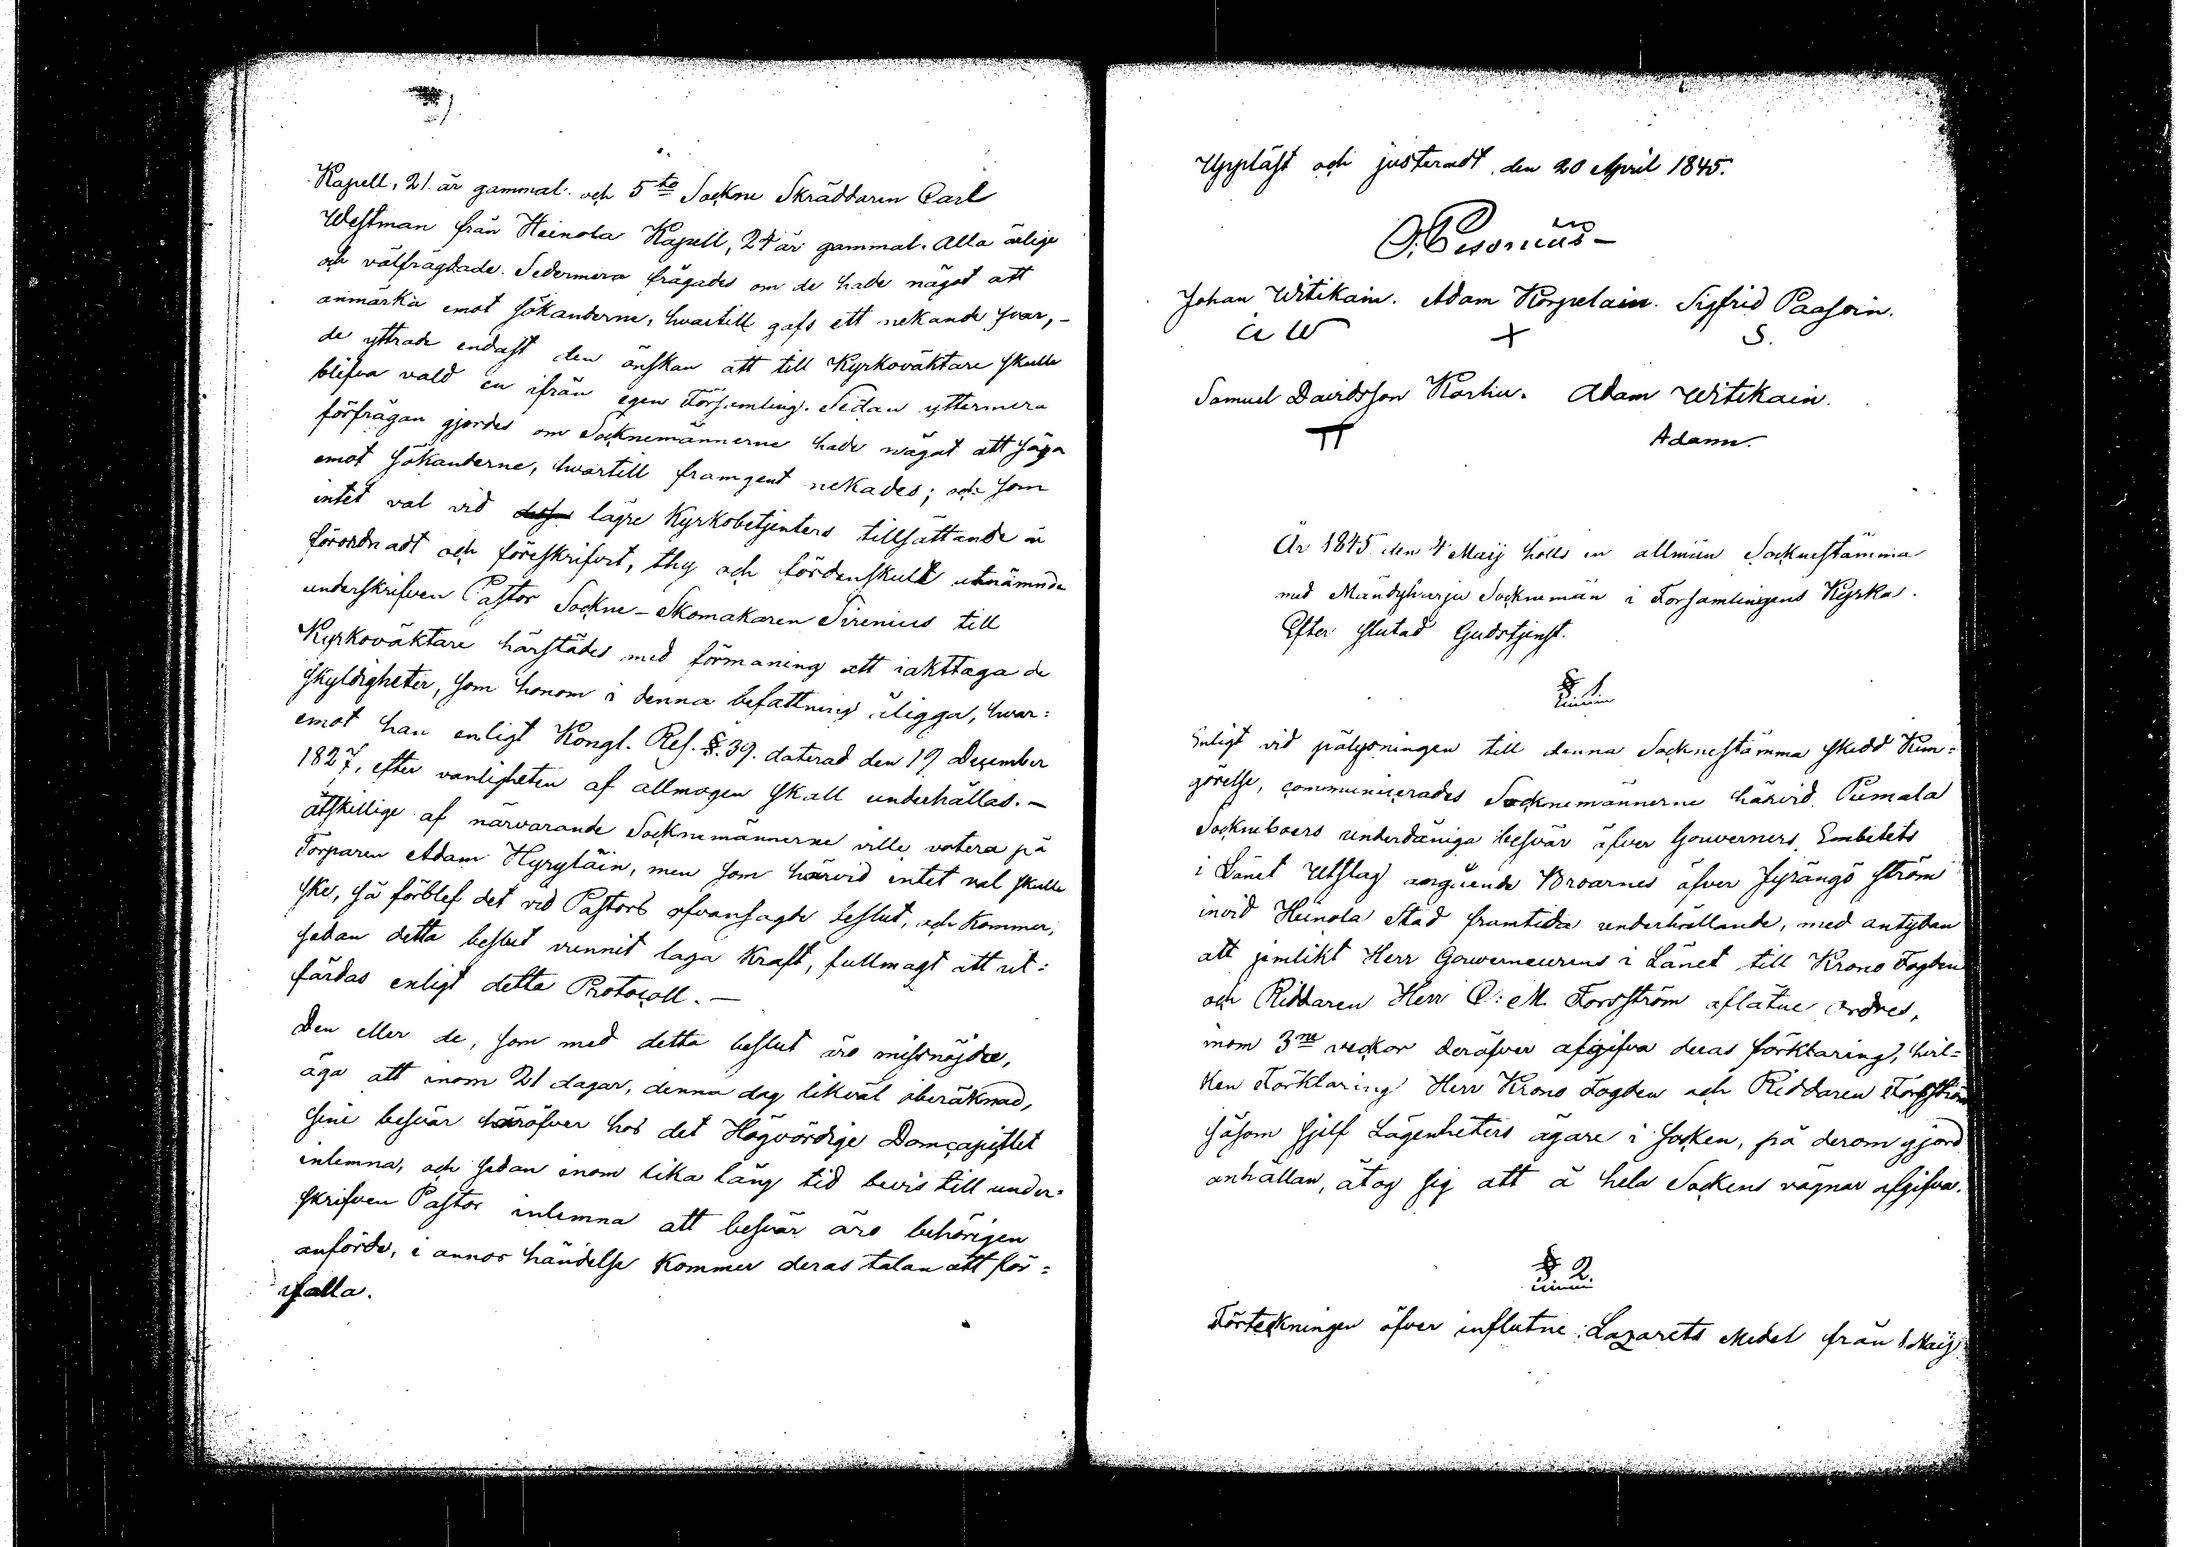 Kapell, 21 år gammal. och 5te Sockne Skräddaren Carl
Westman från Heinola Kapell, 24 år gammal. Alla ärlige
och välfrägdade. Sedermera frågades om de hade något att
anmärka emot sökanderne, hwartill gafs ett nekande svar, –
de yttrade endast den önskan att till Kyrkoväktare skulle
blifva vald en ifrån egen Församling. Sedan yttermera
förfrågan gjordes om Socknemännerne hade något att säga
emot sökanderne, hwartill framgent nekades; och som
intet val vid lägre Kyrkobetjenters tillsättande är
förordnadt och föreskrifvet, thy och fördenskull utnämnde
underskrifven Pastor Sockne-Skomakaren Sirenius till
Kyrkoväktare härstädes med förmaning att iakttaga de
skyldigheter, som honom i denna befattning åligga, hwar=
emot han enligt Kongl. Res. §. 39. daterad den 19 December
1827, efter vanligheten af allmogen skall underhållas. –
Åtskillige af närvarande Socknemännerne ville votera på
Torparen Adam Hyryläin, men som härvid intet val skulle
ske, så förblef det vid Pastors ofvansagde beslut, och kommer,
sedan detta beslut vunnit laga kraft, fullmagt att ut=
färdas enligt detta Protocoll. –
Den eller de, som med detta beslut äro missnöjde,
äga att inom 21 dagar, denna dag likväl oberäknad,
sine besvär häröfver hos det Högvördige Domcapitlet
inlemna, och sedan inom lika lång tid bevis till under=
skrifven Pastor inlemna att besvär äro behörigen
anförde, i annor händelse kommer deras talan att för=
falla.
Uppläst och justeradt den 20 April 1845.
O. Pesonius –
Johan Witikain. Adam Korpelain. Sigfrid Paasoin.
W X S.
Samuel Davidsson Karhu. Adam Witikain.
TT Adam.
År 1845 den 4 Maij hölls en allmän Socknestämma
med Mändyharju Socknemän i Församlingens Kyrka.
Efter slutad Gudstjenst.
§ 1.
Enligt vid pålysningen till denna Socknestämma skedd Kun=
görelse, communicerades Socknemännerne härvid Pumala
Socknebors underdåniga besvär öfver Gouverners Embetets
i Länet Utslag angående Broarnes öfver Jyrängö ström
invid Heinola Stad framtida underhållande, med antydan
att jemlikt Herr Gouverneurens i Länet till Krono Fogden
och Riddaren Herr C: M. Forsström aflåtne ordres,
inom 3ne veckor deröfver afgifva deras förklaring, hvil=
ken Förklaring Herr Krono Fogden och Riddaren Forsström
såsom sjelf Lägenheters ägare i socken, på derom gjord
anhållan, åtog sig att å hela Sockens vägnar afgifva.
§ 2.
Förteckningen öfver influtne Lazarets Medel från 1 Maij